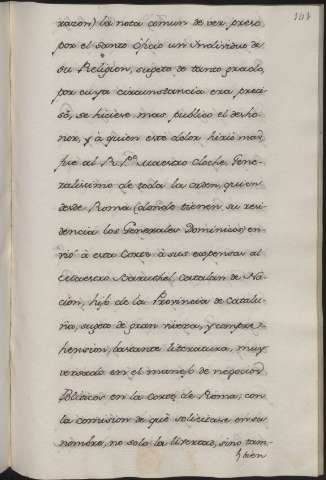 141
razon) la nota comun de ver preso
por el Santo Oficio un Individuo de
su Religion, sugeto de tanto grado,
por cuya circunstancia era preci-
so, se hiciese mas publico el desho-
nor, y à quien este dolor hirió mas,
fue al R. P.e Maestro Cloche, Gene-
ralisimo de toda la orden, quien
desde Roma (donde tienen su resi-
dencia los Generales Dominicos) en-
vió à esta Corte à sus expensas al
Maestro Catalan de Na-
cion, hijo de la Provincia de Catalu-
ña, sugeto de gran viveza, y compre-
hension, bastante literatura, muy
versado en el manejo de negocios
Politicos en la Corte de Roma, con
la comision de què solicitase en su
nombre, no solo la livertad, sino tam-
bien